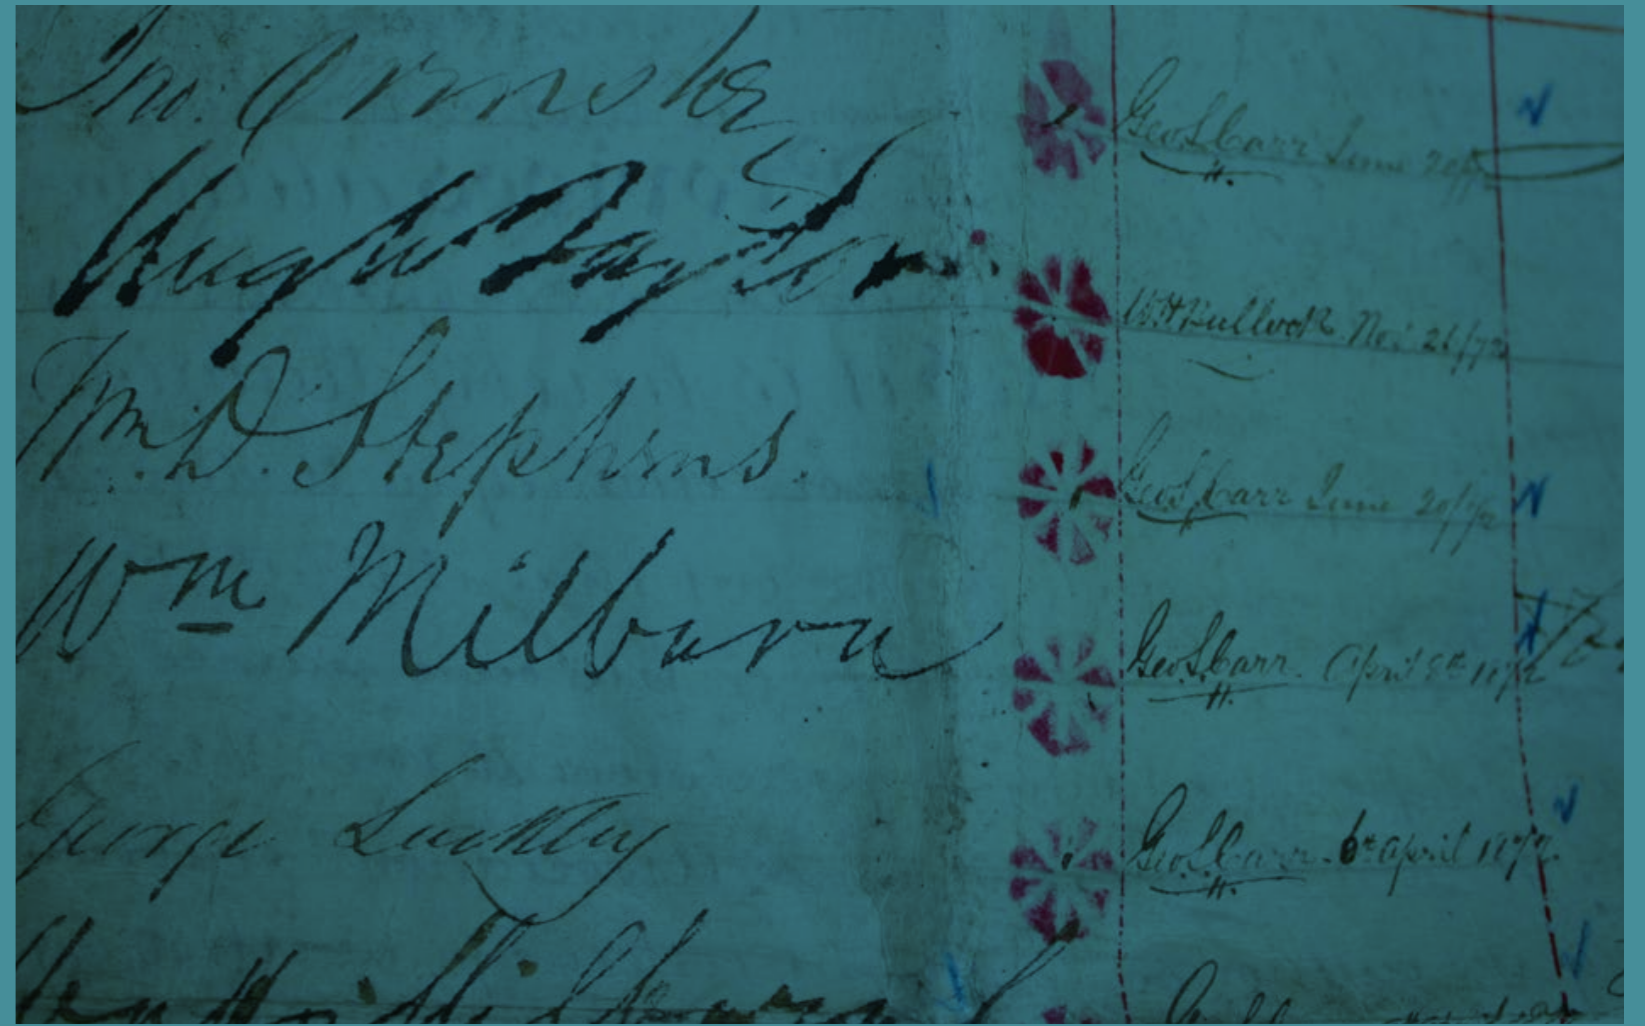 Jno. Ormston
Geo. S. Carr June 20/72
Hugh Taylor
W. H. Bullock Nov. 26/72
Wm. D. Stephens.
Geo. S. Carr June 20/72
Wm Milburn
Geo. S. Carr. April 8th 1872
George Luckley
Geo. S. Carr. 6th april 1872
Milburn